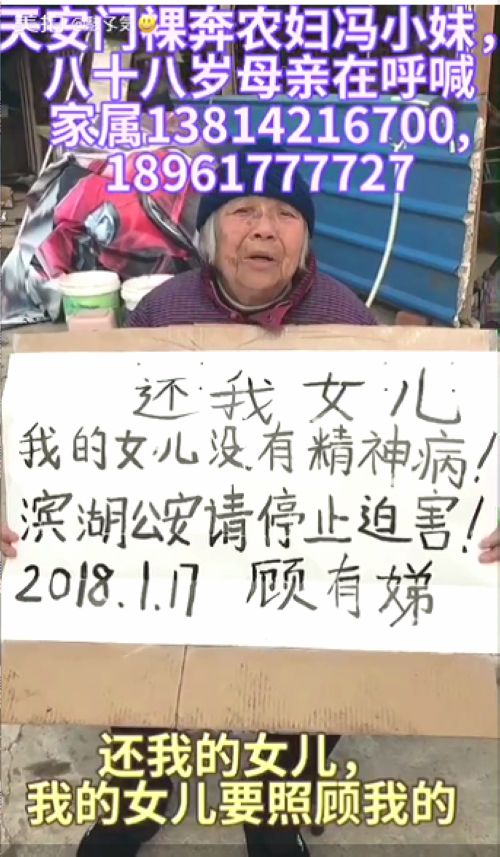 天安门裸奔农妇冯小妹，
八十八岁母亲在呼喊
家属13814216700，
18961777727
还我女儿
我的女儿没有精神病！
滨湖公安请停止迫害！
2018.1.17 顾有娣
还我的女儿，
我的女儿要照顾我的